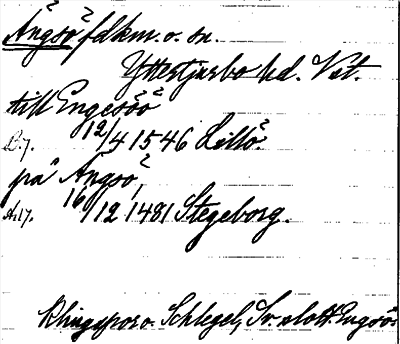 Ängsö, fdkm. o. sn.
Yttertjurbo hd. Vst.
till Engesöö
B.7. 12/4 1546 Lillö.
på Ängsö,
A.17. 16/12 1481 Stegeborg.
Klingspor o. Schlegel, Sv. slott. Engsö.